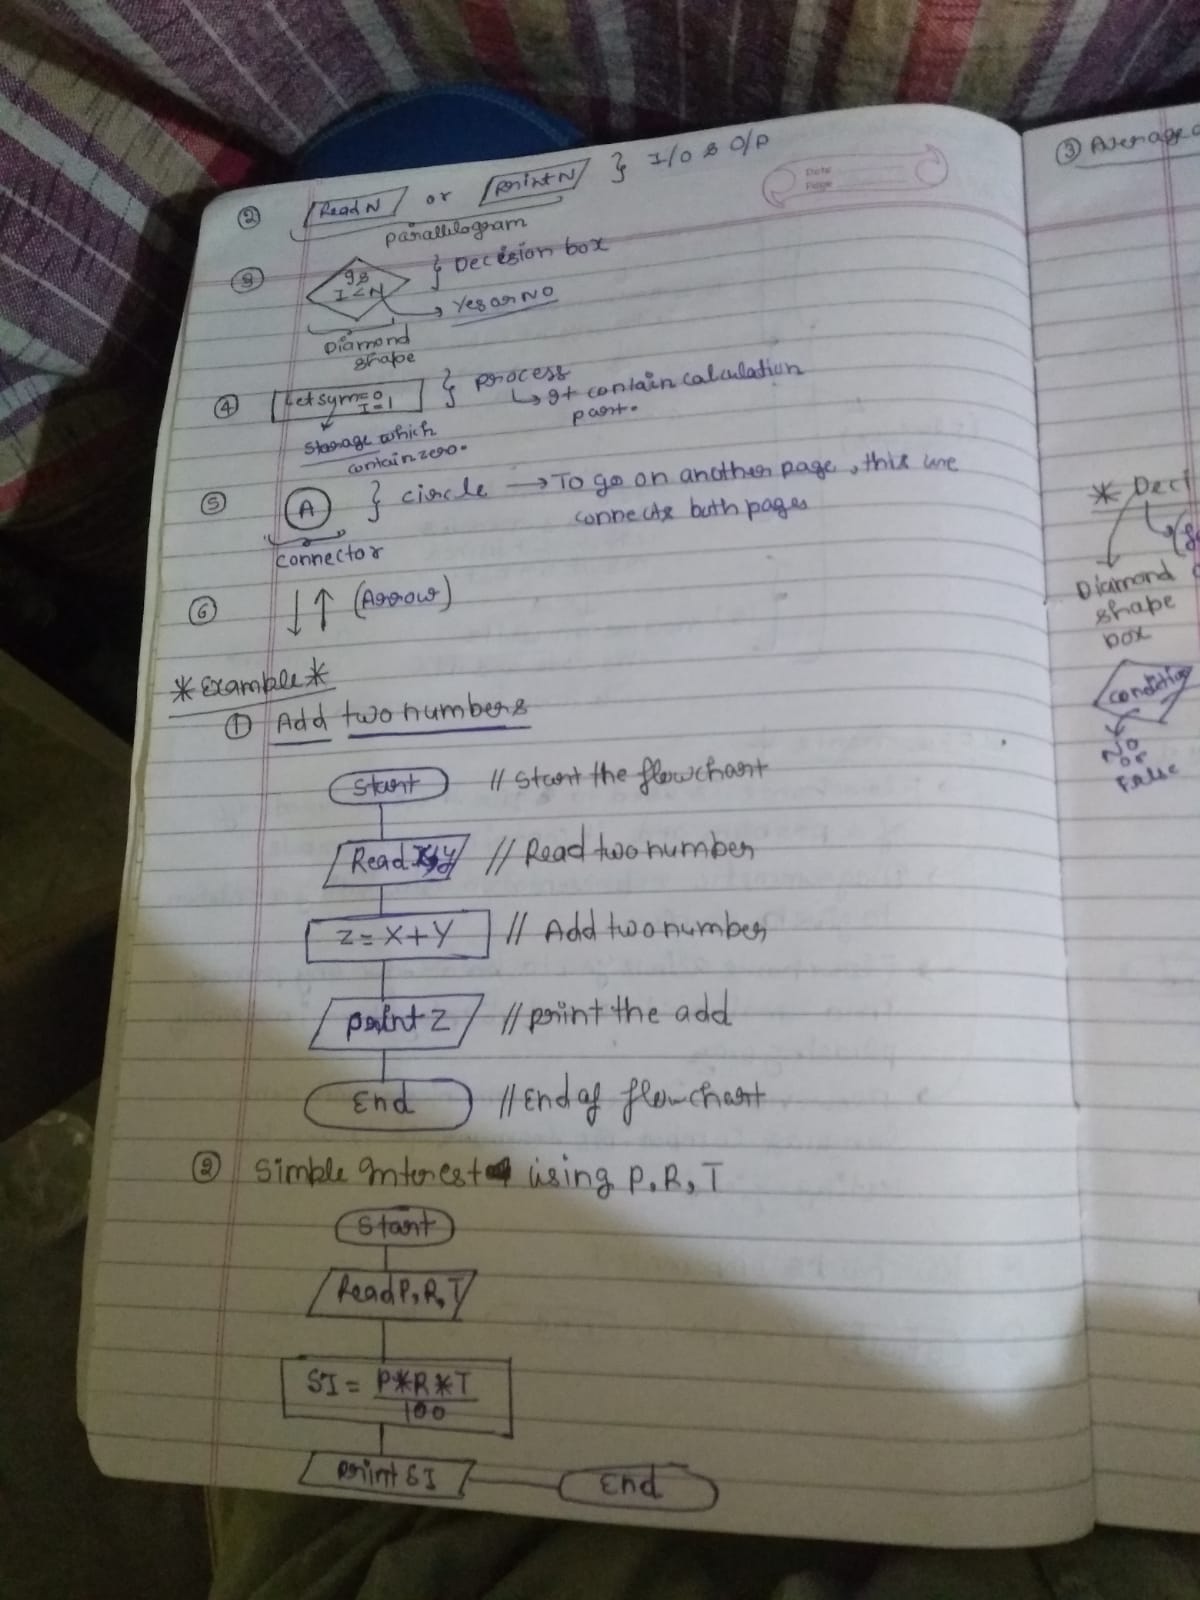 ② Read N or Print N } I/O & O/P
Date
Page
parallilogram
③ Is I < N } Decision box
→ Yes or No
Diamond
shape
④ Let sym=0 I=1 } process
↳ It contain calculation
part.
Storage which
contain zero.
⑤ A } circle → To go on another page, this line
connects both pages
connector
⑥ ↓↑ (Arrow)
* Example *
① Add two numbers
Start // Start the flowchart
Read X,y // Read two number
Z = X+Y // Add two number
print Z // print the add
End // End of flowchart
② Simple Interest using P, R, T
Start
Read P, R, T
SI = P*R*T
100
Print SI End
③ Average
* Deci
Diamond
shape
box
condition
No
or
False